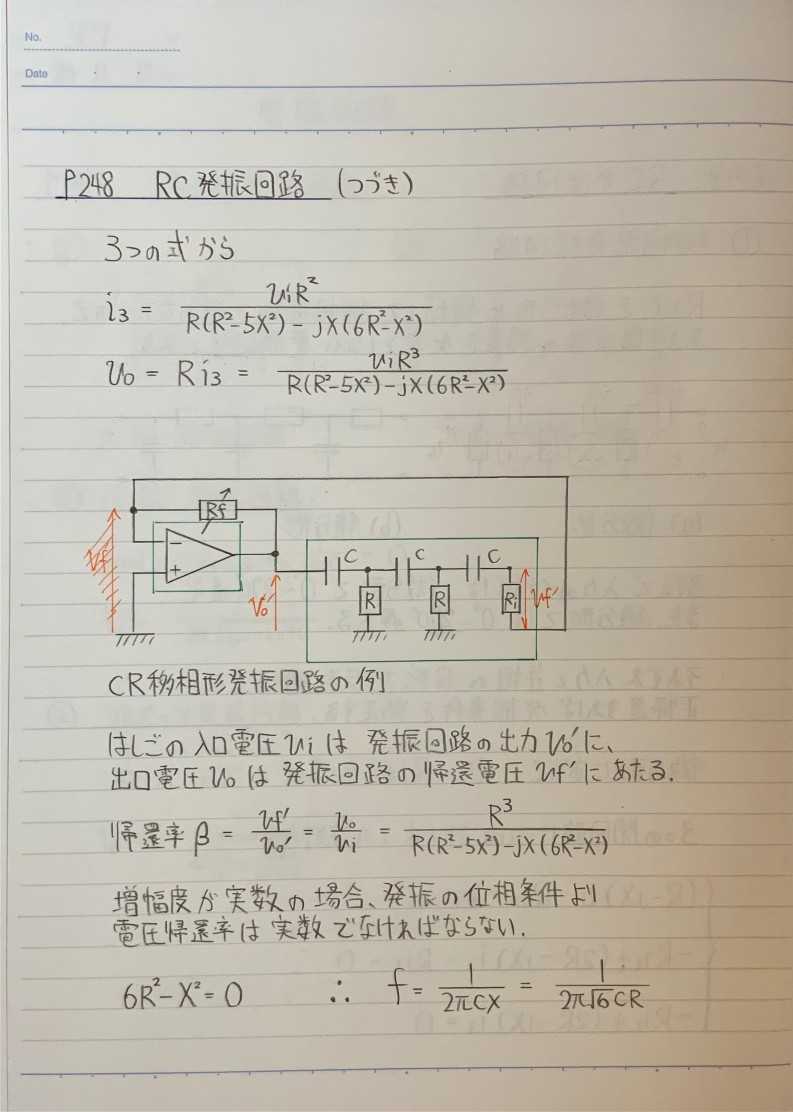 No.
Date
P248 RC発振回路 (つづき)
3つの式から
i₃ = viR² / R(R²-5X²) - jX(6R²-X²)
v₀ = Ri₃ = viR³ / R(R²-5X²)-jX(6R²-X²)
Rf
Vf'
-
+
V₀'
C C C
R R Ri
Vf'
CR移相形発振回路の例
はしごの入口電圧viは 発振回路の出力V₀'に、
出口電圧v₀は発振回路の帰還電圧 vf'にあたる.
帰還率β = vf'/v₀' = v₀/vi = R³ / R(R²-5X²)-jX(6R²-X²)
増幅度が実数の場合、発振の位相条件より
電圧帰還率は実数でなければならない.
6R²-X²=0 ∴ f = 1/2πCX = 1/2π√6CR